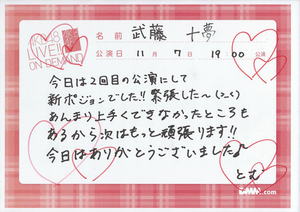 AKB48
LIVE!!
ON DEMAND
名前 武藤 十夢
公演日 11月7日 19:00 公演
今日は2回目の公演にして
新ポジョンでした!!緊張した〜(>_<)
あんまり上手くできなかったところも
あるから次はもっと頑張ります!!
今日はありがとうございました♪
とむ
DMM.com